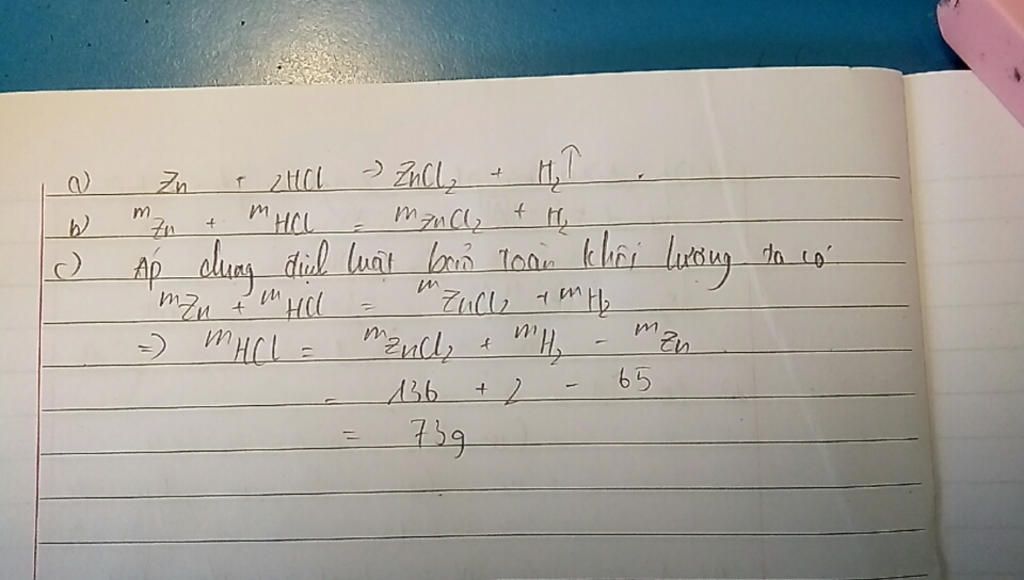 a) Zn + 2HCl → ZnCl₂ + H₂↑.
b) mZn + mHCl = mZnCl₂ + H₂
c) Áp dụng định luật bảo toàn khối lượng ta có
mZn + mHCl = mZnCl₂ + mH₂
=> mHCl = mZnCl₂ + mH₂ - mZn
= 136 + 2 - 65
= 73g